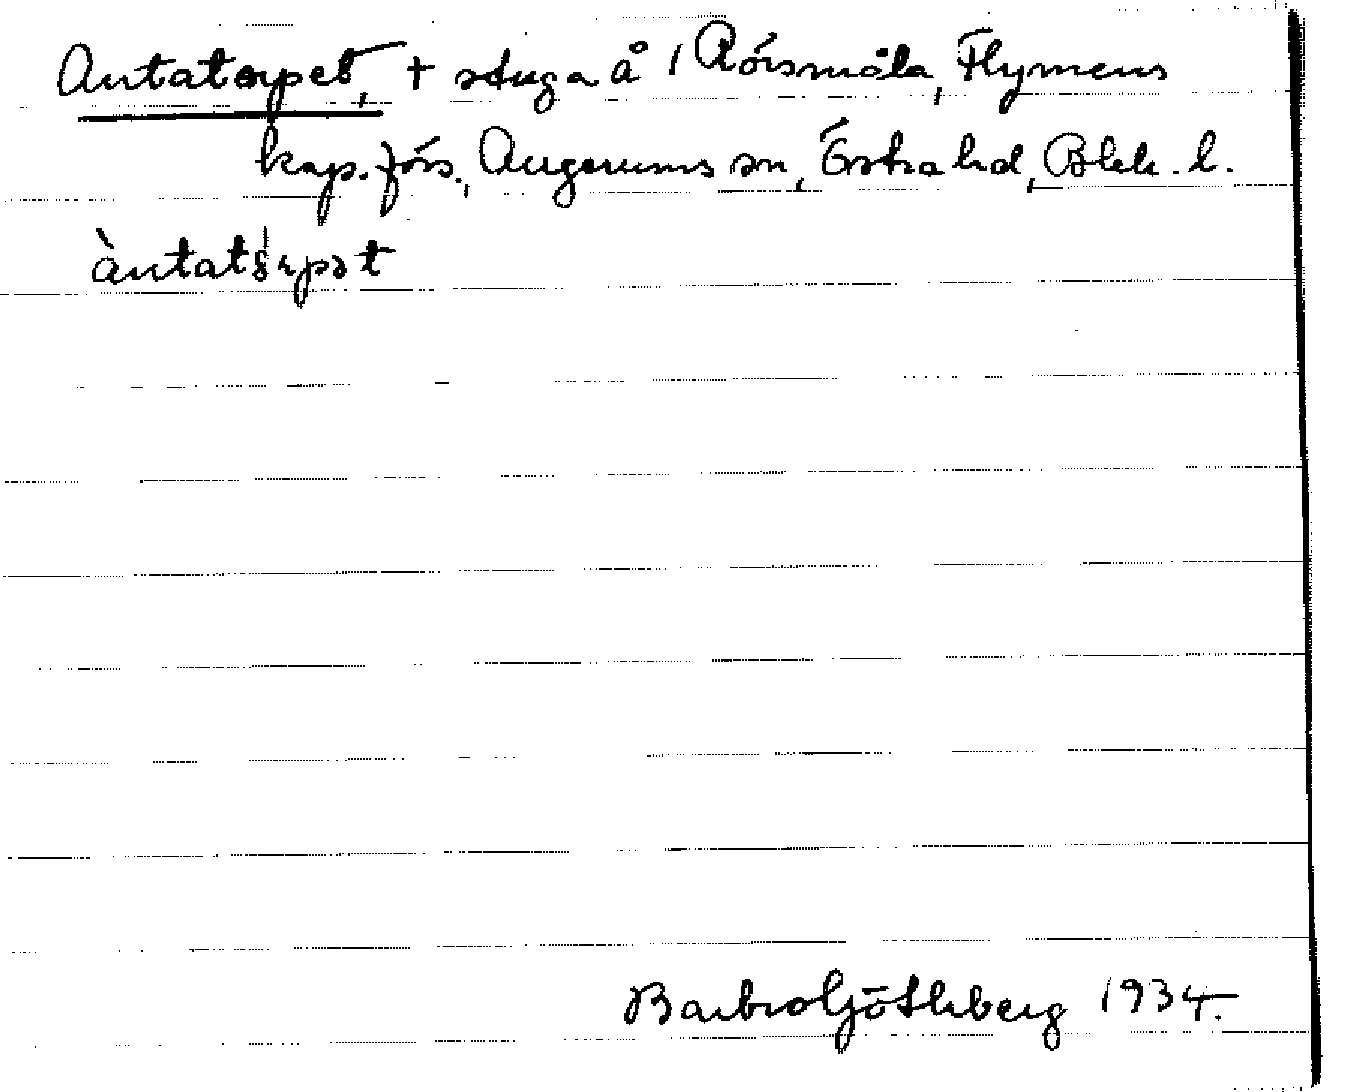 Antatorpet, + stuga å 1 Rörsmåla, Flymens
kap. förs., Augerums sn, Östra hd, Blek. l.
àntatɵrpət
Barbro Göthberg 1934.